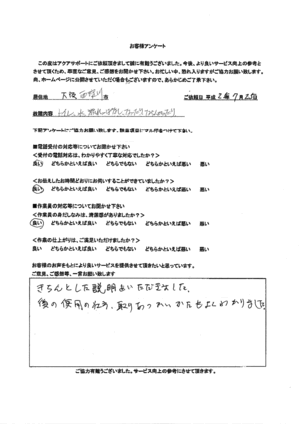 お客様アンケート
この度はアクアサポートにご依頼頂きまして誠に有難うございました。今後、より良いサービス向上の参考と
させて頂くため、率直なご意見、ご感想をお聞かせ下さい。お忙しい中、恐れ入りますがご協力お願い致します。
尚、ホームページに公開させていただく場合もございますので、あらかじめご了承下さい。
居住地 大阪 市 ご依頼日 平成 年 7月 日
故障内容 トイレ 水
下記アンケートにご協力お願い致します。該当項目に丸印をつけて下さい。
■電話受付の対応等についてお聞かせ下さい
<受付の電話対応は、わかりやすく丁寧な対応でしたか?>
良い どちらかといえば良い どちらでもない どちらかといえば悪い 悪い
<お伝えしたお時間どおりにお伺いすることができていましたか?>
良い どちらかといえば良い どちらでもない どちらかといえば悪い 悪い
■作業員の対応等についてお聞かせ下さい
<作業員の身だしなみは、清潔感がありましたか?>
良い どちらかといえば良い どちらでもない どちらかといえば悪い 悪い
<作業の仕上がりは、ご満足いただけましたか?>
良い どちらかといえば良い どちらでもない どちらかといえば悪い 悪い
お客様のお声をもとにより良いサービスを提供させて頂きたいと思っています。
ご意見、ご感想等、一言お願い致します
きちんとした説明をいただきました。
後の使用の仕方、取りあつかいかたもよくわかりました
ご協力有難うございました。サービス向上の参考にさせて頂きます。